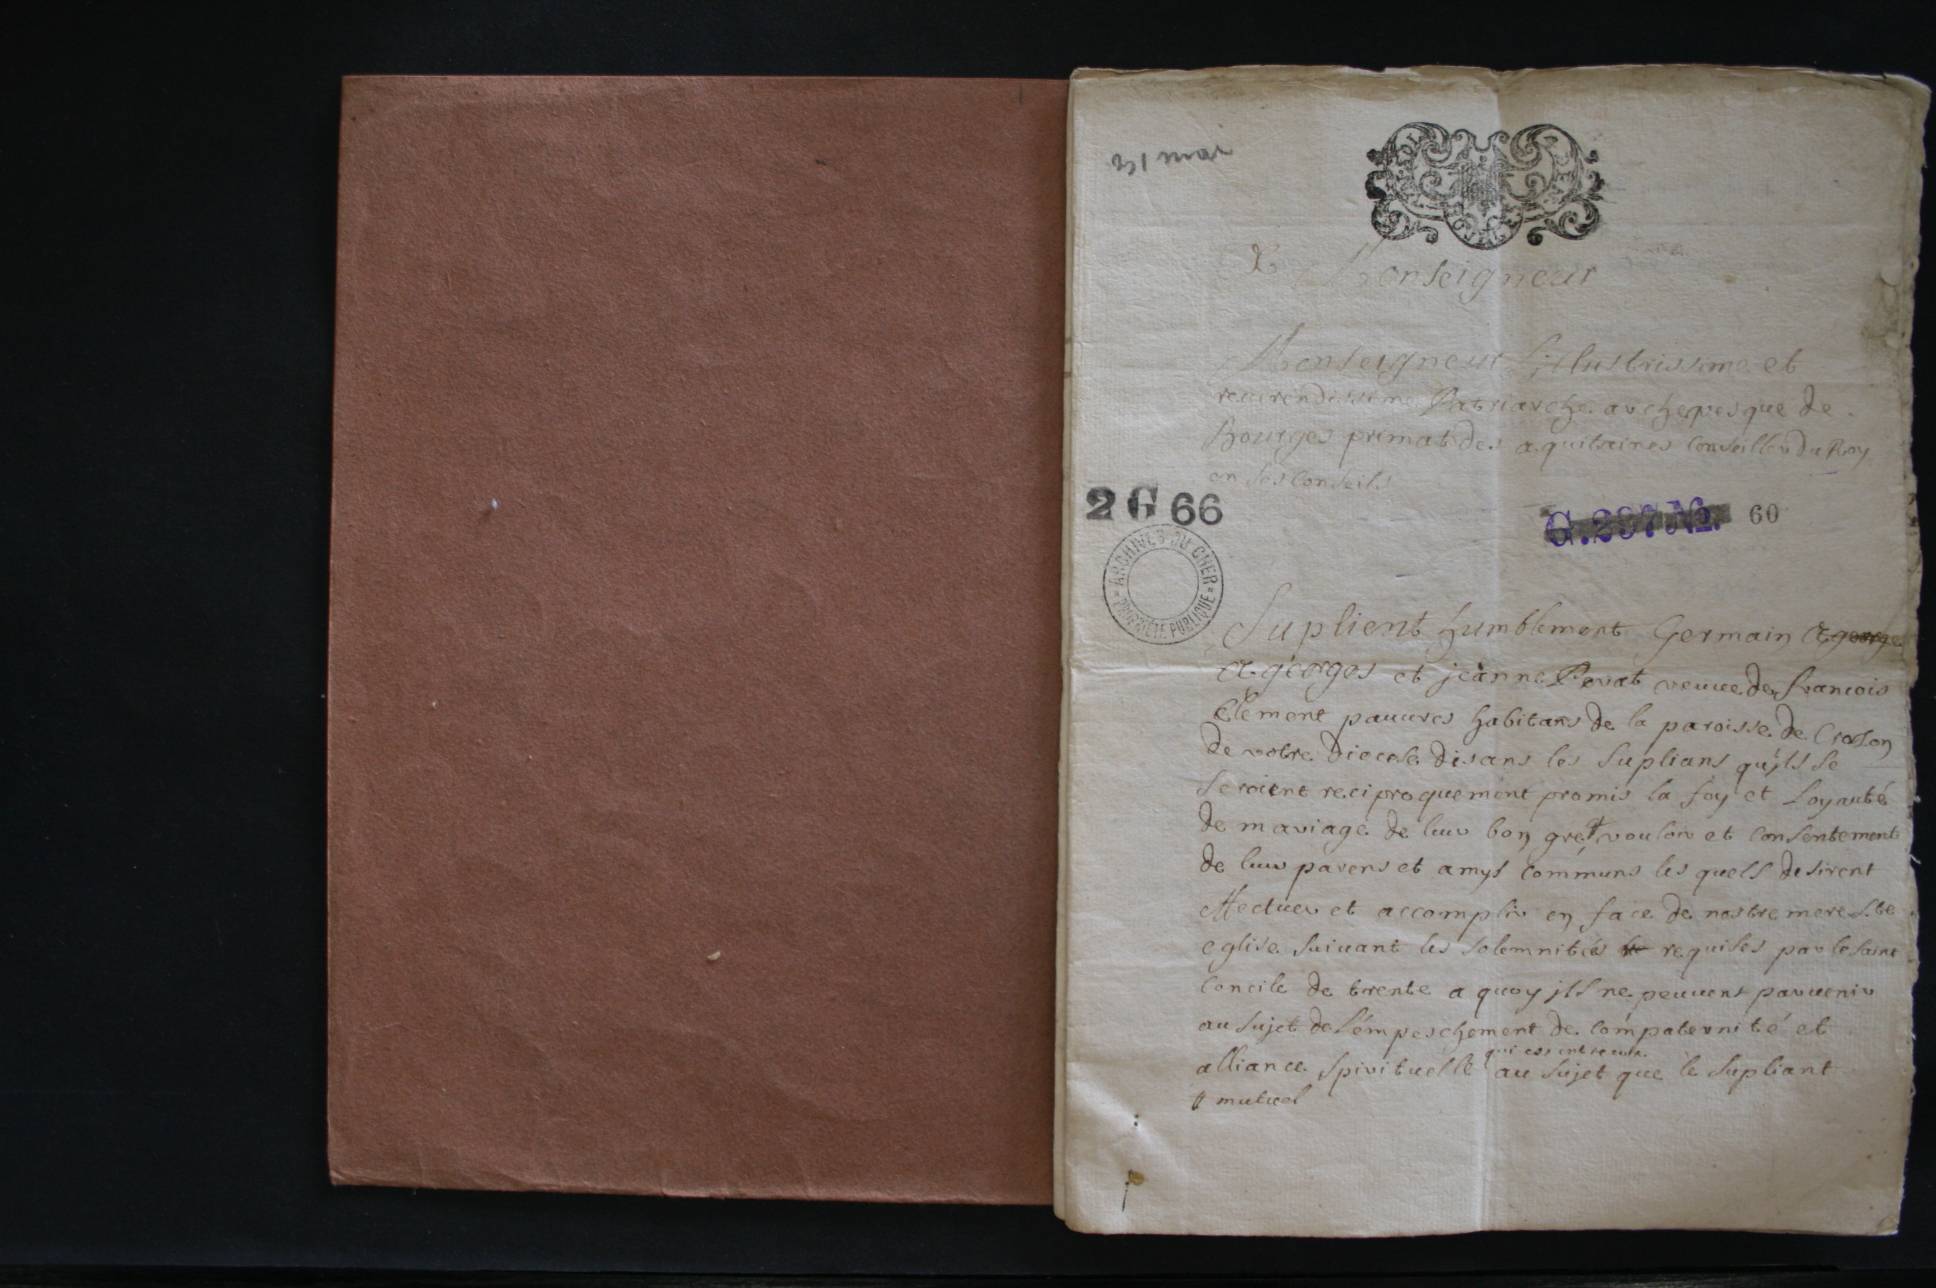 21 mar
A Monseigneur
Monseigneur L'illustrissime et
reuerendissime Patriarche archevesque de
Bourges primat des aquitaines Conseiller du Roy
en ses Conseils
2 G 66
G.297 No. 60
ARCHIVES DU CHER
PROPRIÉTÉ PUBLIQUE
Suplient humblement Germain
georges et jeanne veuue de francois
Clement pauures habitans de la paroisse de Croson
de vostre Diocese disans les Suplians qu'ils se
seroient reciproquement promis la foy et Loyauté
de mariage de leur bon gré # vouloir et Consentement
de leur parens et amys Communs les quels desirent
effectuer et accomplir en face de nostre mere Ste
eglise suiuant les solemnités requises par le saint
Concile de trente a quoy jls ne peuuent paruenir
au sujet de L'empeschement de compaternité et
alliance spirituelle qui est entre eux au sujet que le supliant
# mutuel